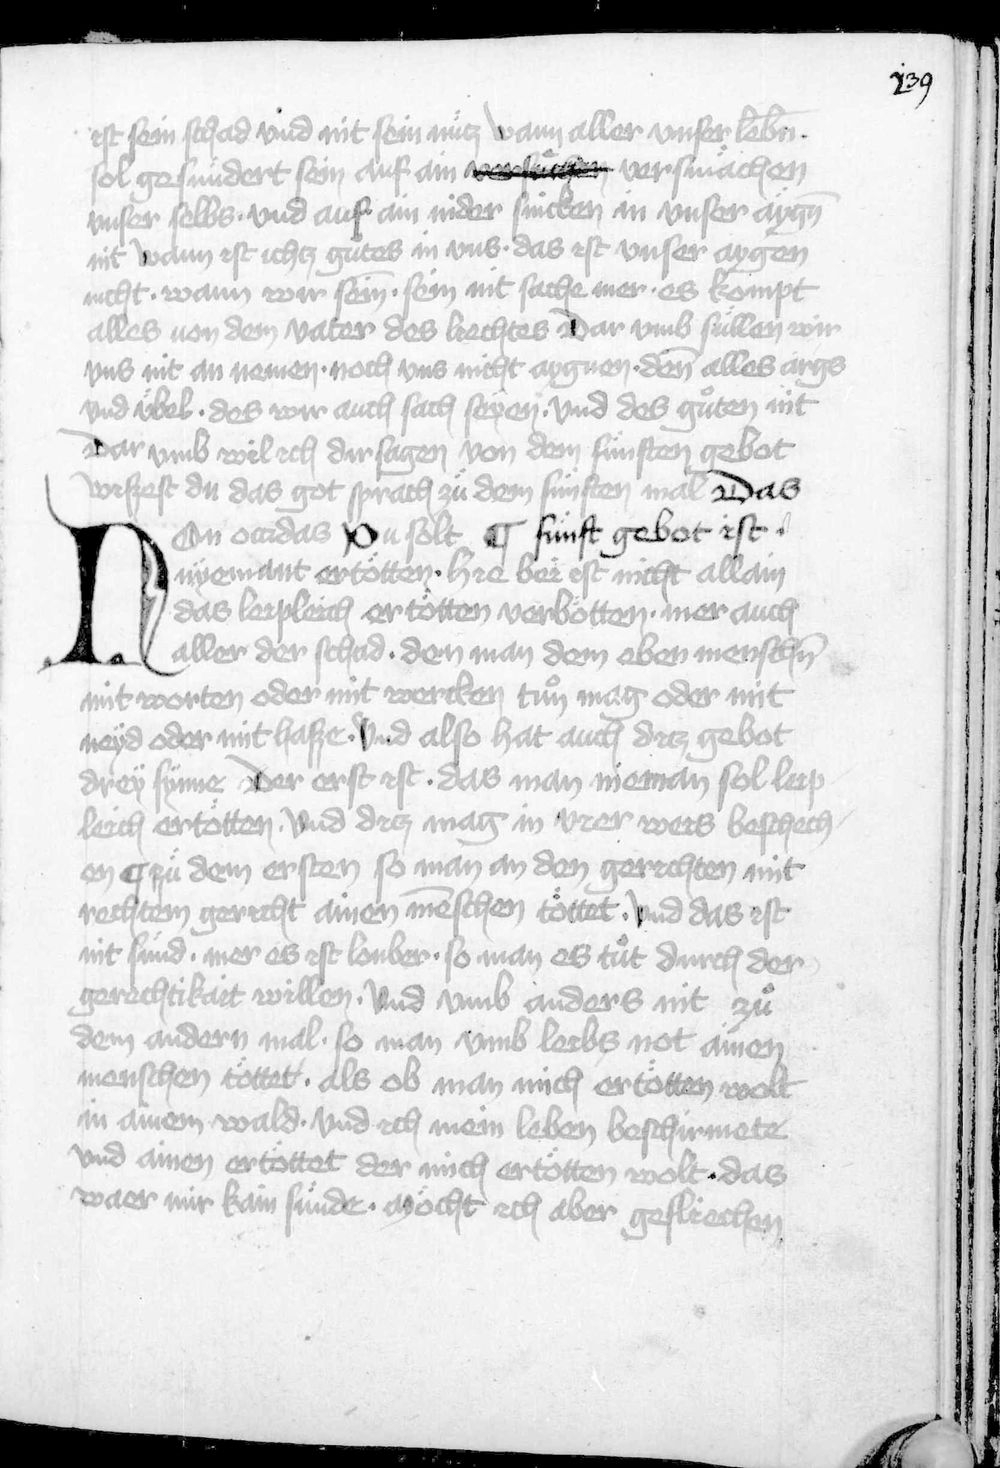 139
ist sein schad vnd nit sein nücz Wann aller vnser lebn̄.
sol gesundert sein auf ain versuͦchen versmaͤchen
vnser selbs. vnd auf ain nider sincken in vnser aygn̄
nit Wann ist ichcz guͦtes in vns. das ist vnser aygen
nicht. wann wir sein̄. sein nit sache mer. es kompt
alles von dem vater des liechtes Dar vmb süllen wir
vns nit an nemen. noch vns nicht aygnen. den̄ alles args
vnd vͤbel. des wir auch sach seyen. Vnd des guͦten nit
Dar vmb wil ich dir sagen von dem fünften gebot
Wissest du das got sprach zuͦ dem fünften mal Das
NOn occidas Du solt ¶ fünft gebot ist.
nyemant ertoͤtten. Hie bei ist nicht allain
das leipleich ertoͤtten verbotten. mer auch
aller der schad. den man dem eben menschn̄
mit worten oder mit wercken tuͦn mag oder mit
neyd oder mit hasse. Vnd also hat auch dicz gebot
drey synne Der erst ist. das man nieman sol leip
leich ertoͤtten. Vnd dicz mag in vier weis beschech
en ¶ zuͦ dem ersten so man an den gerichten mit
rechtem gericht ainen me̅schen toͤttet. Vnd das ist
nit sünd. mer es ist lonber. so man es tuͦt durch der
gerechtikait willen. Vnd vmb anders nit zuͦ
dem andern mal. so man vmb leibs not ainen
menschen toͤttet. als ob man mich ertoͤtten wolt
in ainem wald. Vnd ich mein leben beschirmete
vnd ainen ertoͤttet der mich ertoͤtten wolt. das
waer mir kain sünde. Moͤcht ich aber gefliechen